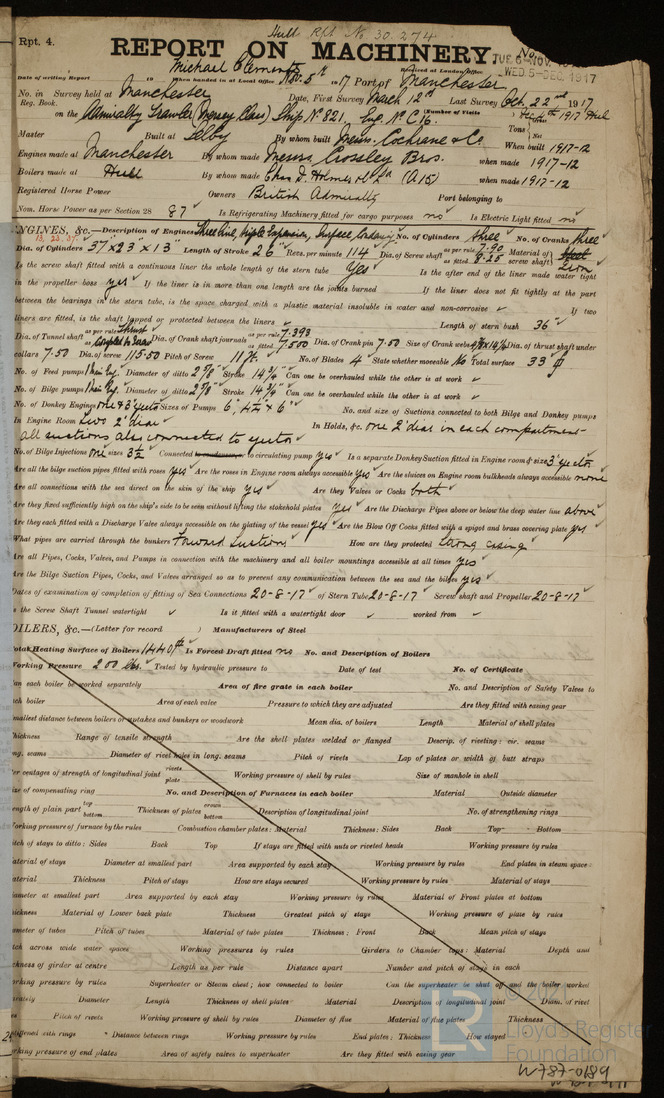 Rpt. 4.
Hull Rpt No 30.274
REPORT ON MACHINERY.
No.
TUE. 6-NOV. 1917
WED. 5-DEC. 1917
Michael Clements
Date of writing Report 19 When handed in at Local Office Nov. 5th 1917 Port of Manchester
Received at London Office
No. in Survey held at Manchester Date, First Survey March 12th Last Survey Oct. 22nd 1917
Reg. Book.
on the Admiralty Trawler (Mersey Class) Ship No 821, Eng. No C16. (Number of Visits
Tons Net
Master Built at Selby By whom built Messrs. Cochrane & Co When built 1917-12
Engines made at Manchester By whom made Messrs. Crossley Bros. when made 1917-12
Boilers made at Hull By whom made Chas D. Holmes & Co Ld (A15) when made 1917-12
Registered Horse Power Owners British Admiralty Port belonging to
Nom. Horse Power as per Section 28 87 Is Refrigerating Machinery fitted for cargo purposes no Is Electric Light fitted no
ENGINES, &c.—Description of Engines Three Crank, Triple Expansion, Surface Condensing No. of Cylinders three No. of Cranks three
13. 23. 37.
Dia. of Cylinders 37" x 23" x 13" Length of Stroke 26" Revs. per minute 114 Dia. of Screw shaft as per rule 7.90 as fitted 8.25 Material of screw shaft Iron
Is the screw shaft fitted with a continuous liner the whole length of the stern tube Yes Is the after end of the liner made water tight
in the propeller boss yes If the liner is in more than one length are the joints burned If the liner does not fit tightly at the part
between the bearings in the stern tube, is the space charged with a plastic material insoluble in water and non-corrosive If two
liners are fitted, is the shaft lapped or protected between the liners Length of stern bush 36"
Dia. of Tunnel shaft as per rule Thrust as fitted Dia. of Crank shaft journals as per rule 7.393 as fitted 7.500 Dia. of Crank pin 7.50 Size of Crank webs Dia. of thrust shaft under
collars 7.50 Dia. of screw 115.50 Pitch of Screw 11 ft. No. of Blades 4 State whether moveable No Total surface 33
No. of Feed pumps Main Eng. Diameter of ditto 2 5/8" Stroke 14 3/4" Can one be overhauled while the other is at work
No. of Bilge pumps Main Eng. Diameter of ditto 2 5/8" Stroke 14 3/4" Can one be overhauled while the other is at work
No. of Donkey Engines one & 3" ejector Sizes of Pumps 6", 4 1/2" x 6" No. and size of Suctions connected to both Bilge and Donkey pumps
In Engine Room two 2" diar In Holds, &c. one 2" diar in each compartment
all suctions also connected to ejector
No. of Bilge Injections one sizes 3 1/2 Connected to condenser, or to circulating pump yes Is a separate Donkey Suction fitted in Engine room & size 3" ejector
Are all the bilge suction pipes fitted with roses yes Are the roses in Engine room always accessible yes Are the sluices on Engine room bulkheads always accessible none
Are all connections with the sea direct on the skin of the ship yes Are they Valves or Cocks both
Are they fixed sufficiently high on the ship's side to be seen without lifting the stokehold plates yes Are the Discharge Pipes above or below the deep water line above
Are they each fitted with a Discharge Valve always accessible on the plating of the vessel yes Are the Blow Off Cocks fitted with a spigot and brass covering plate yes
What pipes are carried through the bunkers Forward Suctions How are they protected strong casing
Are all Pipes, Cocks, Valves, and Pumps in connection with the machinery and all boiler mountings accessible at all times yes
Are the Bilge Suction Pipes, Cocks, and Valves arranged so as to prevent any communication between the sea and the bilges yes
Dates of examination of completion of fitting of Sea Connections 20-8-17 of Stern Tube 20-8-17 Screw shaft and Propeller 20-8-17
Is the Screw Shaft Tunnel watertight Is it fitted with a watertight door worked from
BOILERS, &c.—(Letter for record ) Manufacturers of Steel
Total Heating Surface of Boilers 1440 Is Forced Draft fitted no No. and Description of Boilers
Working Pressure 200 lbs. Tested by hydraulic pressure to Date of test No. of Certificate
Can each boiler be worked separately Area of fire grate in each boiler No. and Description of Safety Valves to
each boiler Area of each valve Pressure to which they are adjusted Are they fitted with easing gear
Smallest distance between boilers or uptakes and bunkers or woodwork Mean dia. of boilers Length Material of shell plates
Thickness Range of tensile strength Are the shell plates welded or flanged Descrip. of riveting: cir. seams
long. seams Diameter of rivet holes in long. seams Pitch of rivets Lap of plates or width of butt straps
Per centages of strength of longitudinal joint rivets plate Working pressure of shell by rules Size of manhole in shell
Size of compensating ring No. and Description of Furnaces in each boiler Material Outside diameter
Length of plain part top bottom Thickness of plates crown bottom Description of longitudinal joint No. of strengthening rings
Working pressure of furnace by the rules Combustion chamber plates: Material Thickness: Sides Back Top Bottom
Pitch of stays to ditto: Sides Back Top If stays are fitted with nuts or riveted heads Working pressure by rules
Material of stays Diameter at smallest part Area supported by each stay Working pressure by rules End plates in steam space
Material Thickness Pitch of stays How are stays secured Working pressure by rules Material of stays
Diameter at smallest part Area supported by each stay Working pressure by rules Material of Front plates at bottom
Thickness Material of Lower back plate Thickness Greatest pitch of stays Working pressure of plate by rules
Diameter of tubes Pitch of tubes Material of tube plates Thickness: Front Back Mean pitch of stays
Pitch across wide water spaces Working pressures by rules Girders to Chamber tops: Material Depth and
thickness of girder at centre Length as per rule Distance apart Number and pitch of stays in each
Working pressure by rules Superheater or Steam chest; how connected to boiler Can the superheater is shut off and the boiler worked
separately Diameter Length Thickness of shell plates Material Description of longitudinal joint Diam. of rivet
holes Pitch of rivets Working pressure of shell by rules Diameter of flue Material of flue plates Thickness
If stiffened with rings Distance between rings Working pressure by rules End plates: Thickness How stayed
Working pressure of end plates Area of safety valves to superheater Are they fitted with easing gear
LR
Lloyd's Register
Foundation
W787-0189